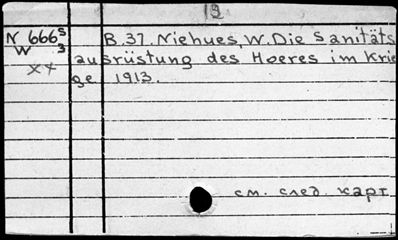 19
N 666 S B.37. Niehues, W. Die Sanitäts
W 3 ausrüstung des Heeres im Krie
xx ge 1913.
см. след. карт